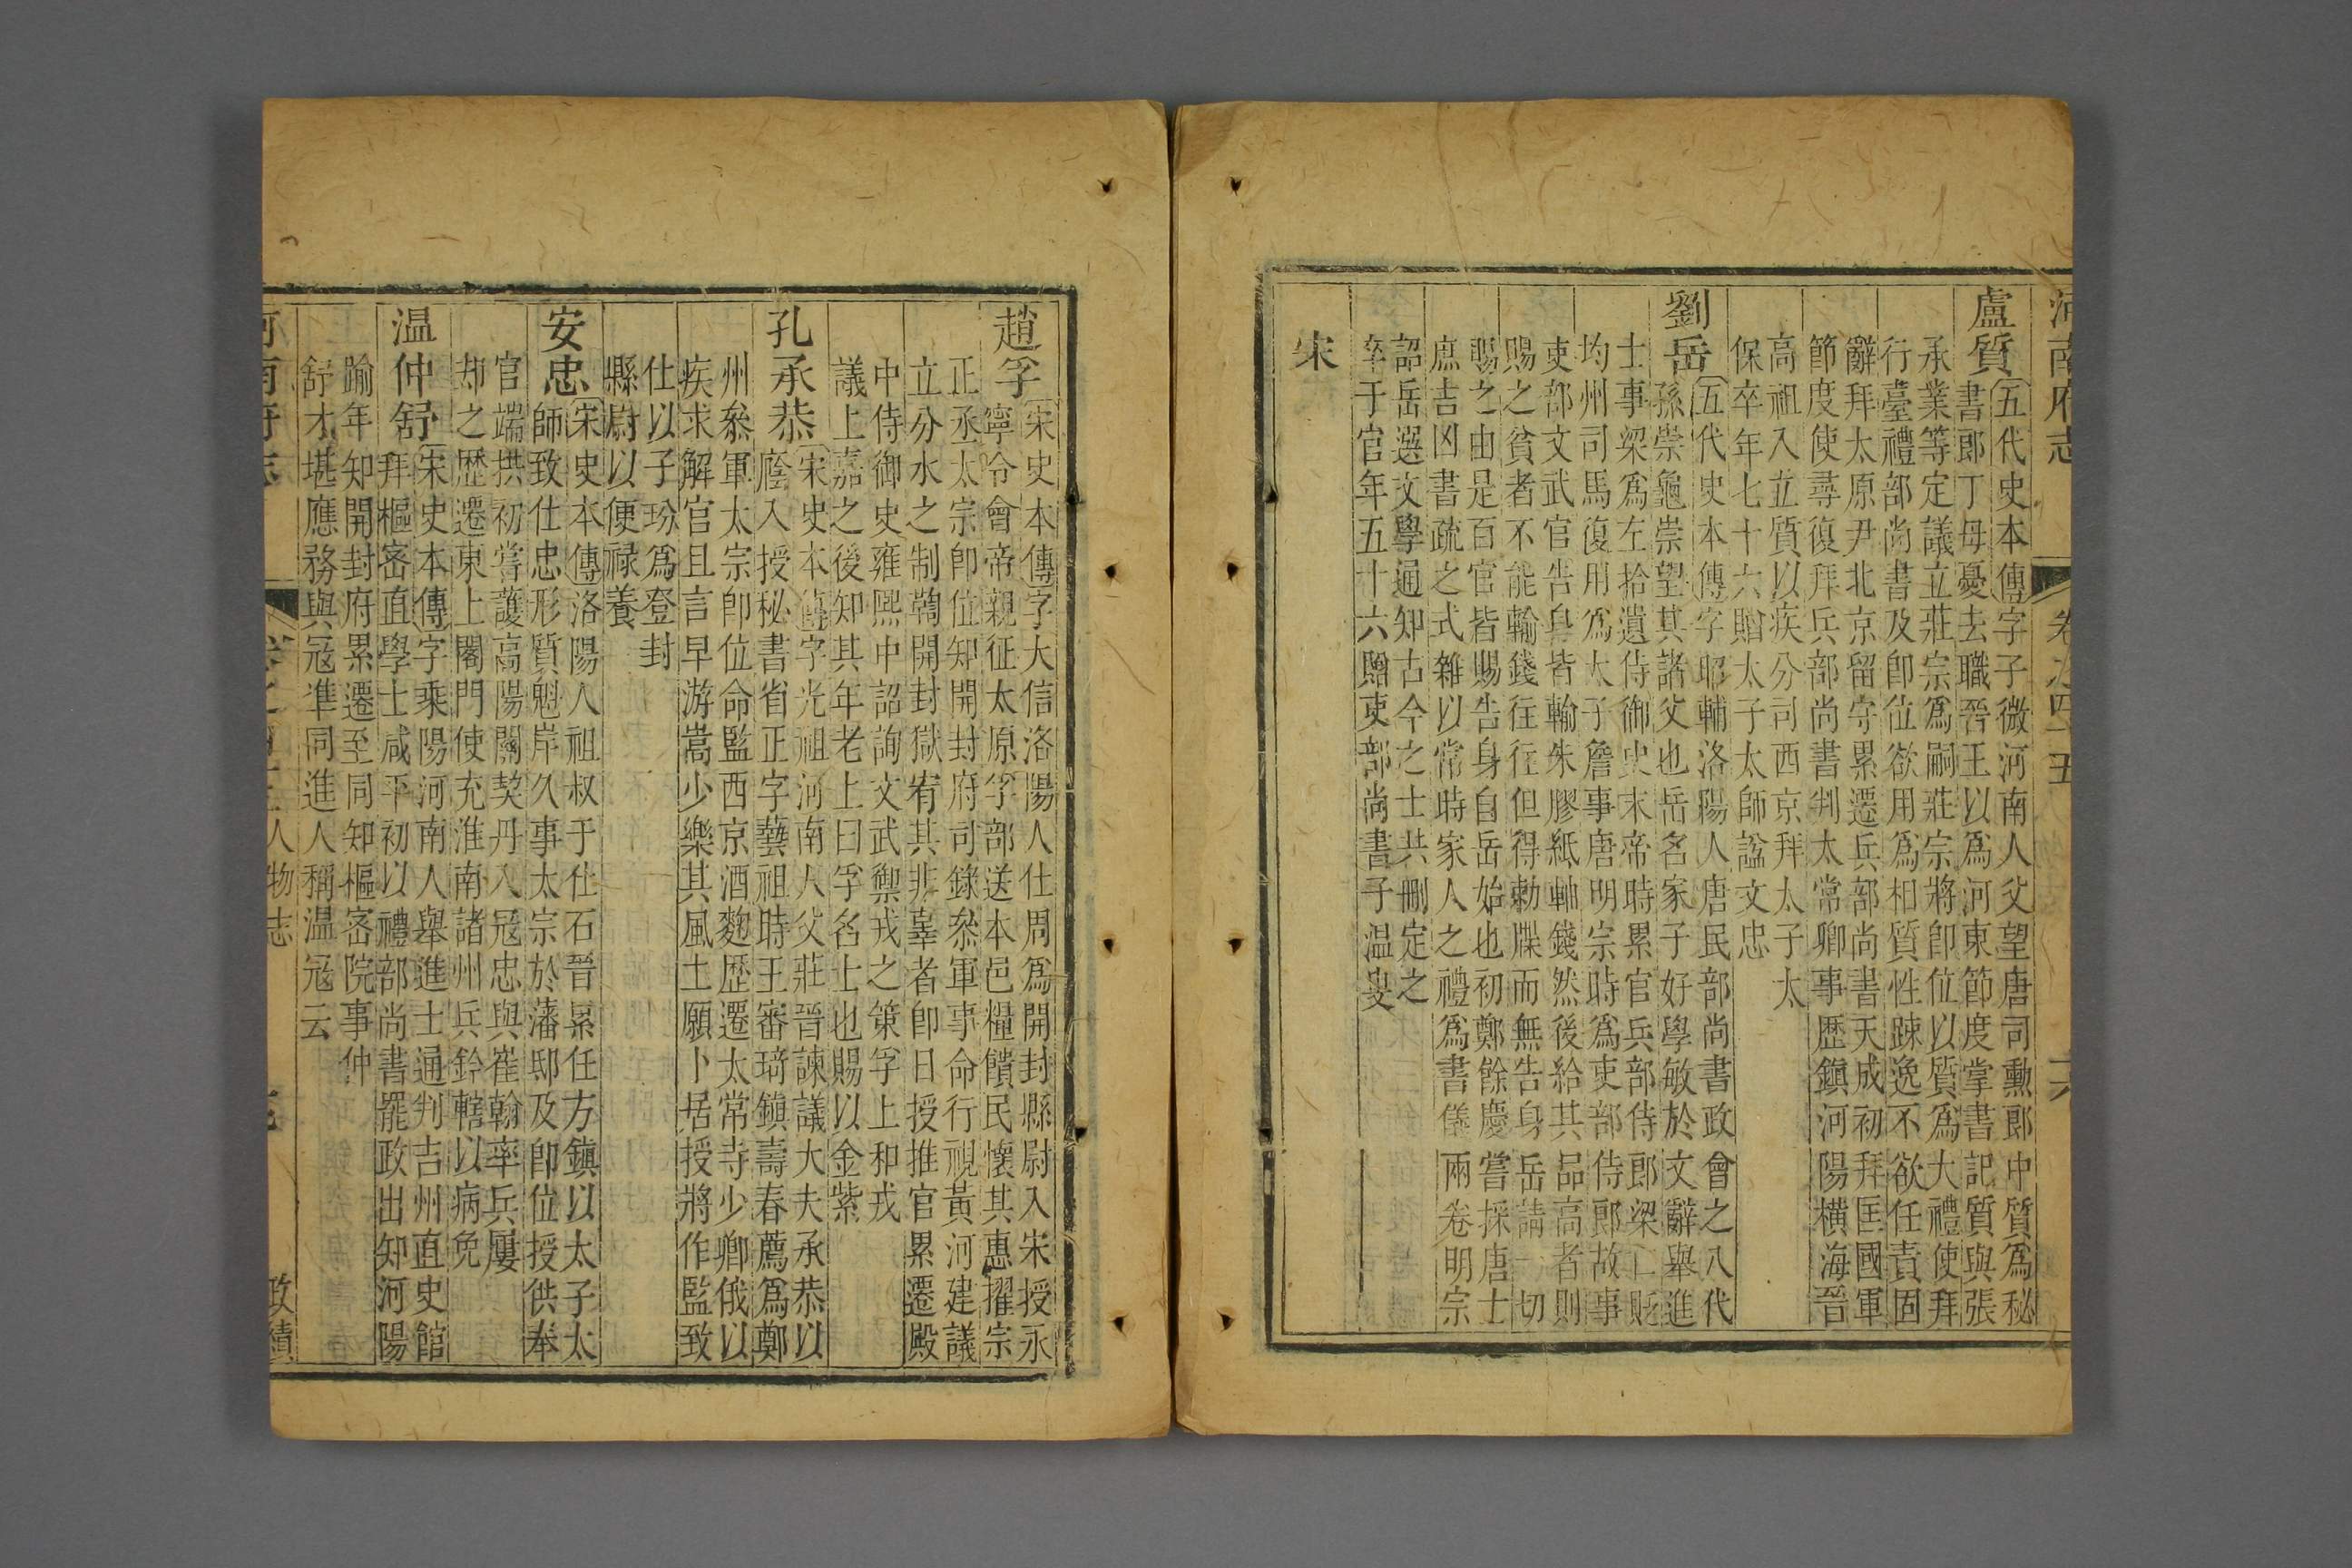 河南府志 卷之四十五 十六
盧質
五代史本傳字子微河南人父望唐司勳郎中質爲秘
書郎丁母憂去職晉王以爲河東節度掌書記質與張
承業等定議立莊宗爲嗣莊宗將卽位以質爲大禮使拜
行臺禮部尚書及卽位欲用爲相質性踈逸不欲任責固
辭拜太原尹北京留守累遷兵部尚書天成初拜匡國軍
節度使尋復拜兵部尚書判太常卿事歷鎮河陽橫海晉
高祖入立質以疾分司西京拜太子太
保卒年七十六贈太子太師諡文忠
劉岳
五代史本傳字昭輔洛陽人唐民部尚書政會之八代
孫崇龜崇望其諸父也岳名家子好學敏於文辭舉進
士事梁爲左拾遺侍御史末帝時累官兵部侍郎梁亡貶
均州司馬復用爲太子詹事唐明宗時爲吏部侍郎故事
吏部文武官告身皆輸朱膠紙軸錢然後給其品高者則
賜之貧者不能輸錢往往但得勅牒而無告身岳請一切
賜之由是百官皆賜告身自岳始也初鄭餘慶嘗採唐士
庶吉凶書疏之式雜以常時家人之禮爲書儀兩卷明宗
詔岳選文學通知古今之士共刪定之
卒于官年五十六贈吏部尚書子温叟
宋
趙孚
宋史本傳字大信洛陽人仕周爲開封縣尉入宋授永
寧令會帝親征太原孚部送本邑糧饋民懷其惠擢宗
正丞太宗卽位知開封府司錄叅軍事命行視黃河建議
立分水之制鞫開封獄宥其非辜者卽日授推官累遷殿
中侍御史雍熙中詔詢文武禦戎之策孚上和戎
議上嘉之後知其年老上曰孚名士也賜以金紫
孔承恭
宋史本傳字光祖河南人父莊晉諫議大夫承恭以
廕入授秘書省正字藝祖時王審琦鎮壽春薦爲鄭
州叅軍太宗卽位命監西京酒麴歷遷太常寺少卿俄以
疾求解官且言早游嵩少樂其風土願卜居授將作監致
仕以子玢爲登封
縣尉以便祿養
安忠
宋史本傳洛陽人祖叔于仕石晉累任方鎮以太子太
師致仕忠形質魁岸久事太宗於藩邸及卽位授供奉
官端拱初嘗護高陽關契丹入冦忠與崔翰率兵屢
却之歷遷東上閤門使充淮南諸州兵鈐轄以病免
温仲舒
宋史本傳字秉陽河南人舉進士通判吉州直史館
拜樞密直學士咸平初以禮部尚書罷政出知河陽
踰年知開封府累遷至同知樞密院事仲
舒才堪應務與冦準同進人稱温冦云
河南府志 卷之四十五人物志 政績